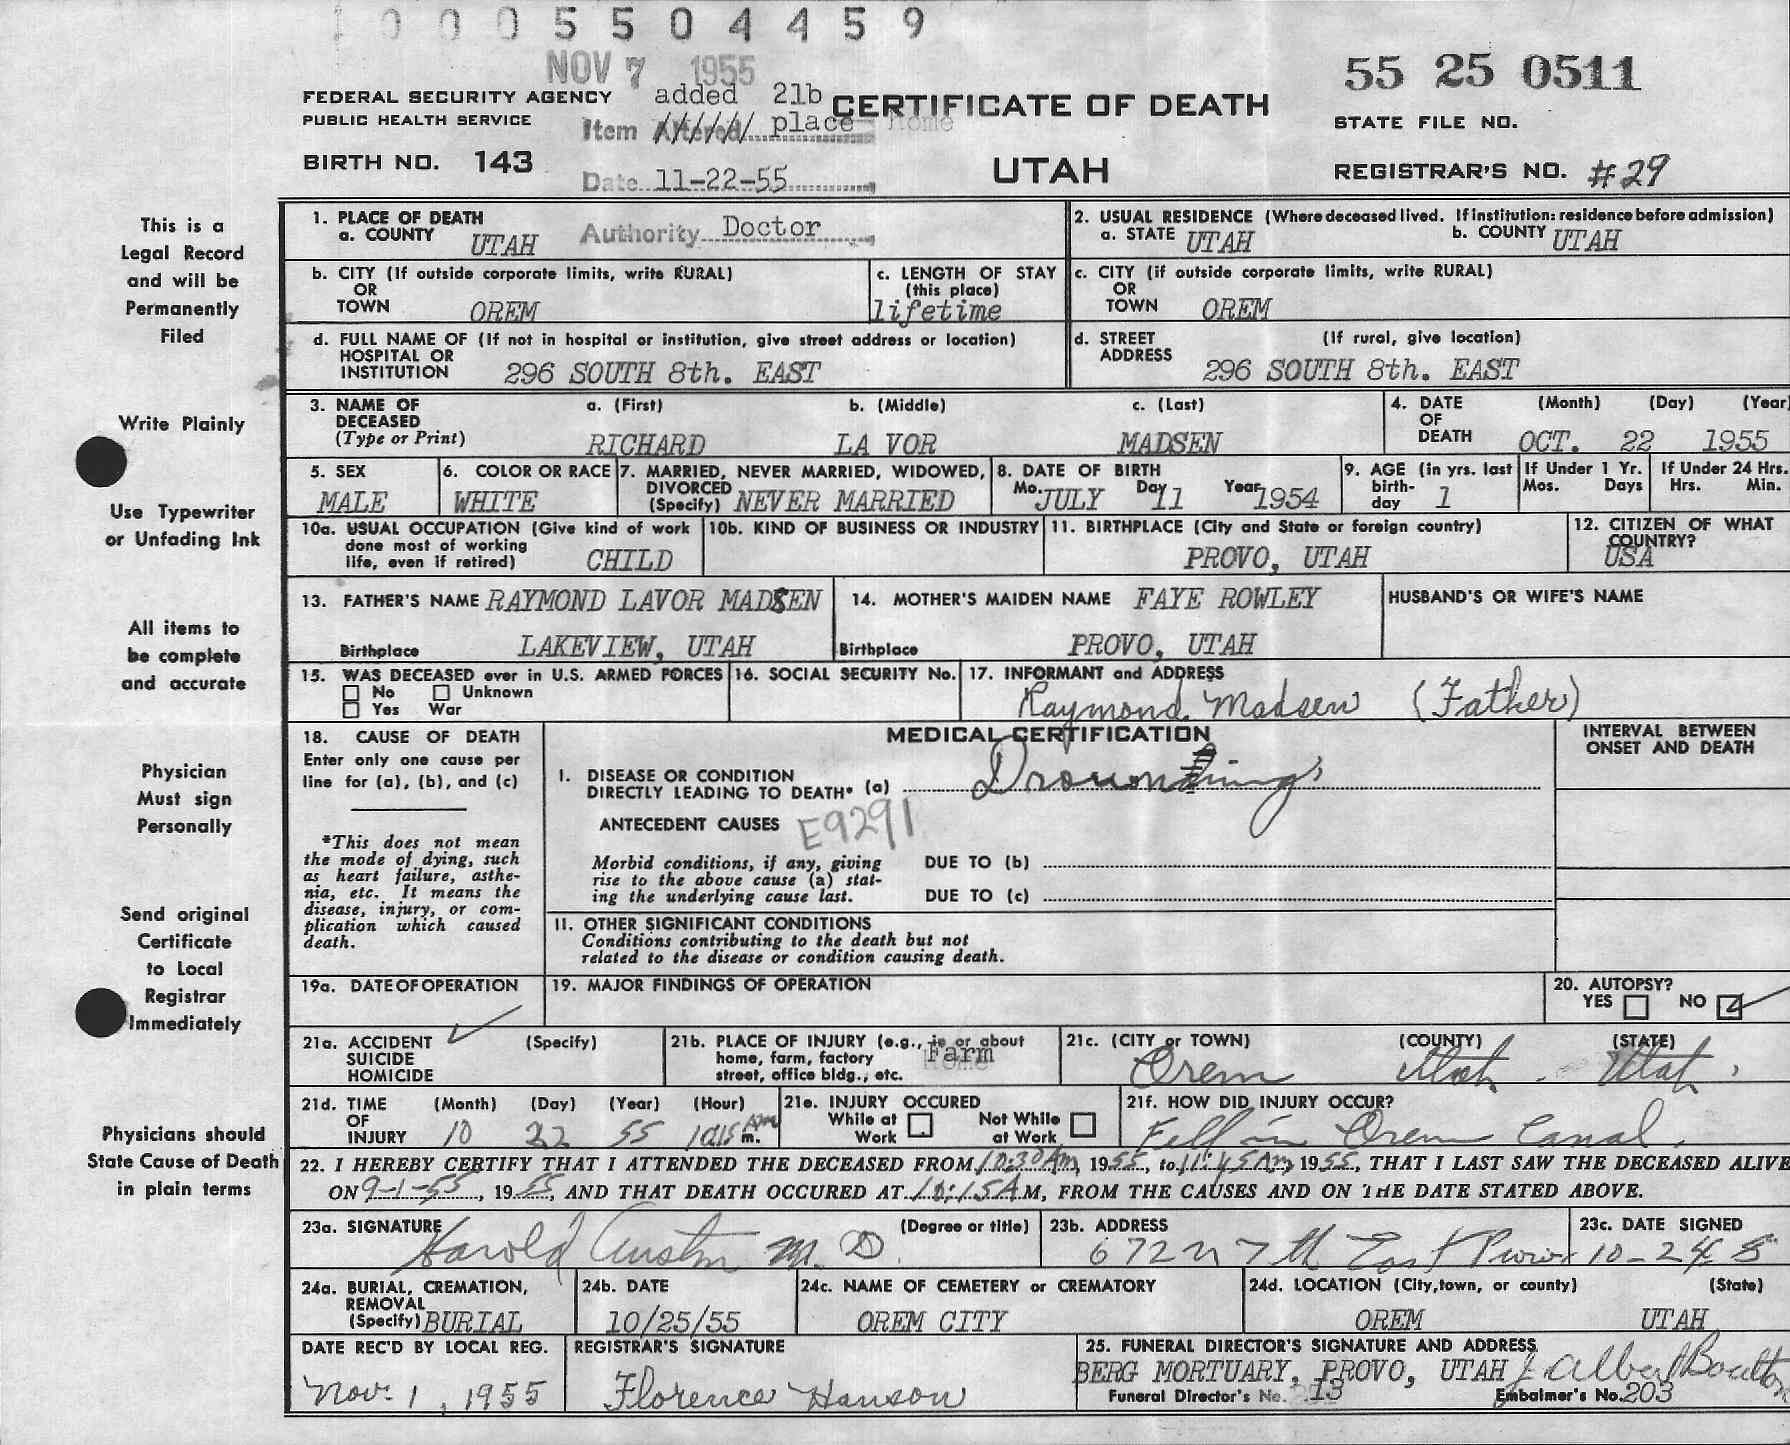 1 0 0 0 5 5 0 4 4 5 9
NOV 7 1955
55 25 0511
FEDERAL SECURITY AGENCY
added 21b
CERTIFICATE OF DEATH
PUBLIC HEALTH SERVICE
Item Altered place Home
STATE FILE NO.
BIRTH NO. 143
Date 11-22-55
UTAH
REGISTRAR'S NO. #29
This is a
Legal Record
and will be
Permanently
Filed
Write Plainly
Use Typewriter
or Unfading Ink
All items to
be complete
and accurate
Physician
Must sign
Personally
Send original
Certificate
to Local
Registrar
Immediately
Physicians should
State Cause of Death
in plain terms
1. PLACE OF DEATH
a. COUNTY UTAH
Authority Doctor
2. USUAL RESIDENCE (Where deceased lived. If institution: residence before admission)
a. STATE UTAH b. COUNTY UTAH
b. CITY (If outside corporate limits, write RURAL)
OR
TOWN OREM
c. LENGTH OF STAY
(this place)
lifetime
c. CITY (if outside corporate limits, write RURAL)
OR
TOWN OREM
d. FULL NAME OF (If not in hospital or institution, give street address or location)
HOSPITAL OR
INSTITUTION 296 SOUTH 8th. EAST
d. STREET (If rural, give location)
ADDRESS
296 SOUTH 8th. EAST
3. NAME OF a. (First) b. (Middle) c. (Last)
DECEASED
(Type or Print) RICHARD LA VOR MADSEN
4. DATE (Month) (Day) (Year)
OF
DEATH OCT. 22 1955
5. SEX
MALE
6. COLOR OR RACE
WHITE
7. MARRIED, NEVER MARRIED, WIDOWED,
DIVORCED
(Specify) NEVER MARRIED
8. DATE OF BIRTH
Mo. JULY Day 11 Year 1954
9. AGE (in yrs. last
birth-
day 1
If Under 1 Yr.
Mos. Days
If Under 24 Hrs.
Hrs. Min.
10a. USUAL OCCUPATION (Give kind of work
done most of working
life, even if retired) CHILD
10b. KIND OF BUSINESS OR INDUSTRY
11. BIRTHPLACE (City and State or foreign country)
PROVO, UTAH
12. CITIZEN OF WHAT
COUNTRY?
USA
13. FATHER'S NAME RAYMOND LAVOR MADSEN
Birthplace LAKEVIEW, UTAH
14. MOTHER'S MAIDEN NAME FAYE ROWLEY
Birthplace PROVO, UTAH
HUSBAND'S OR WIFE'S NAME
15. WAS DECEASED ever in U.S. ARMED FORCES
No Unknown
Yes War
16. SOCIAL SECURITY No.
17. INFORMANT and ADDRESS
Raymond Madsen (Father)
18. CAUSE OF DEATH
Enter only one cause per
line for (a), (b), and (c)
*This does not mean
the mode of dying, such
as heart failure, asthe-
nia, etc. It means the
disease, injury, or com-
plication which caused
death.
MEDICAL CERTIFICATION
INTERVAL BETWEEN
ONSET AND DEATH
I. DISEASE OR CONDITION
DIRECTLY LEADING TO DEATH* (a) Drowning
ANTECEDENT CAUSES E9291
Morbid conditions, if any, giving DUE TO (b)
rise to the above cause (a) stat-
ing the underlying cause last. DUE TO (c)
II. OTHER SIGNIFICANT CONDITIONS
Conditions contributing to the death but not
related to the disease or condition causing death.
19a. DATE OF OPERATION
19. MAJOR FINDINGS OF OPERATION
20. AUTOPSY?
YES NO
21a. ACCIDENT (Specify)
SUICIDE
HOMICIDE
21b. PLACE OF INJURY (e.g., in or about
home, farm, factory Farm
street, office bldg., etc. Home
21c. (CITY or TOWN) (COUNTY) (STATE)
Orem Utah Utah
21d. TIME (Month) (Day) (Year) (Hour)
OF
INJURY 10 22 55 10:15 AM m.
21e. INJURY OCCURED
While at Not While
Work at Work
21f. HOW DID INJURY OCCUR?
Fell in Orem Canal.
22. I HEREBY CERTIFY THAT I ATTENDED THE DECEASED FROM 10:30 AM, 1955, to 11:45 AM, 1955, THAT I LAST SAW THE DECEASED ALIVE
ON 9-1-55, 1955, AND THAT DEATH OCCURED AT 10:15 A M, FROM THE CAUSES AND ON THE DATE STATED ABOVE.
23a. SIGNATURE (Degree or title)
Harold Austin M.D.
23b. ADDRESS
672 N 7th East Provo
23c. DATE SIGNED
10-24 5
24a. BURIAL, CREMATION,
REMOVAL
(Specify) BURIAL
24b. DATE
10/25/55
24c. NAME OF CEMETERY or CREMATORY
OREM CITY
24d. LOCATION (City, town, or county) (State)
OREM UTAH
DATE REC'D BY LOCAL REG.
Nov. 1, 1955
REGISTRAR'S SIGNATURE
Florence Hanson
25. FUNERAL DIRECTOR'S SIGNATURE AND ADDRESS
BERG MORTUARY, PROVO, UTAH Albert Boulton
Funeral Director's No. 13 Embalmer's No. 203